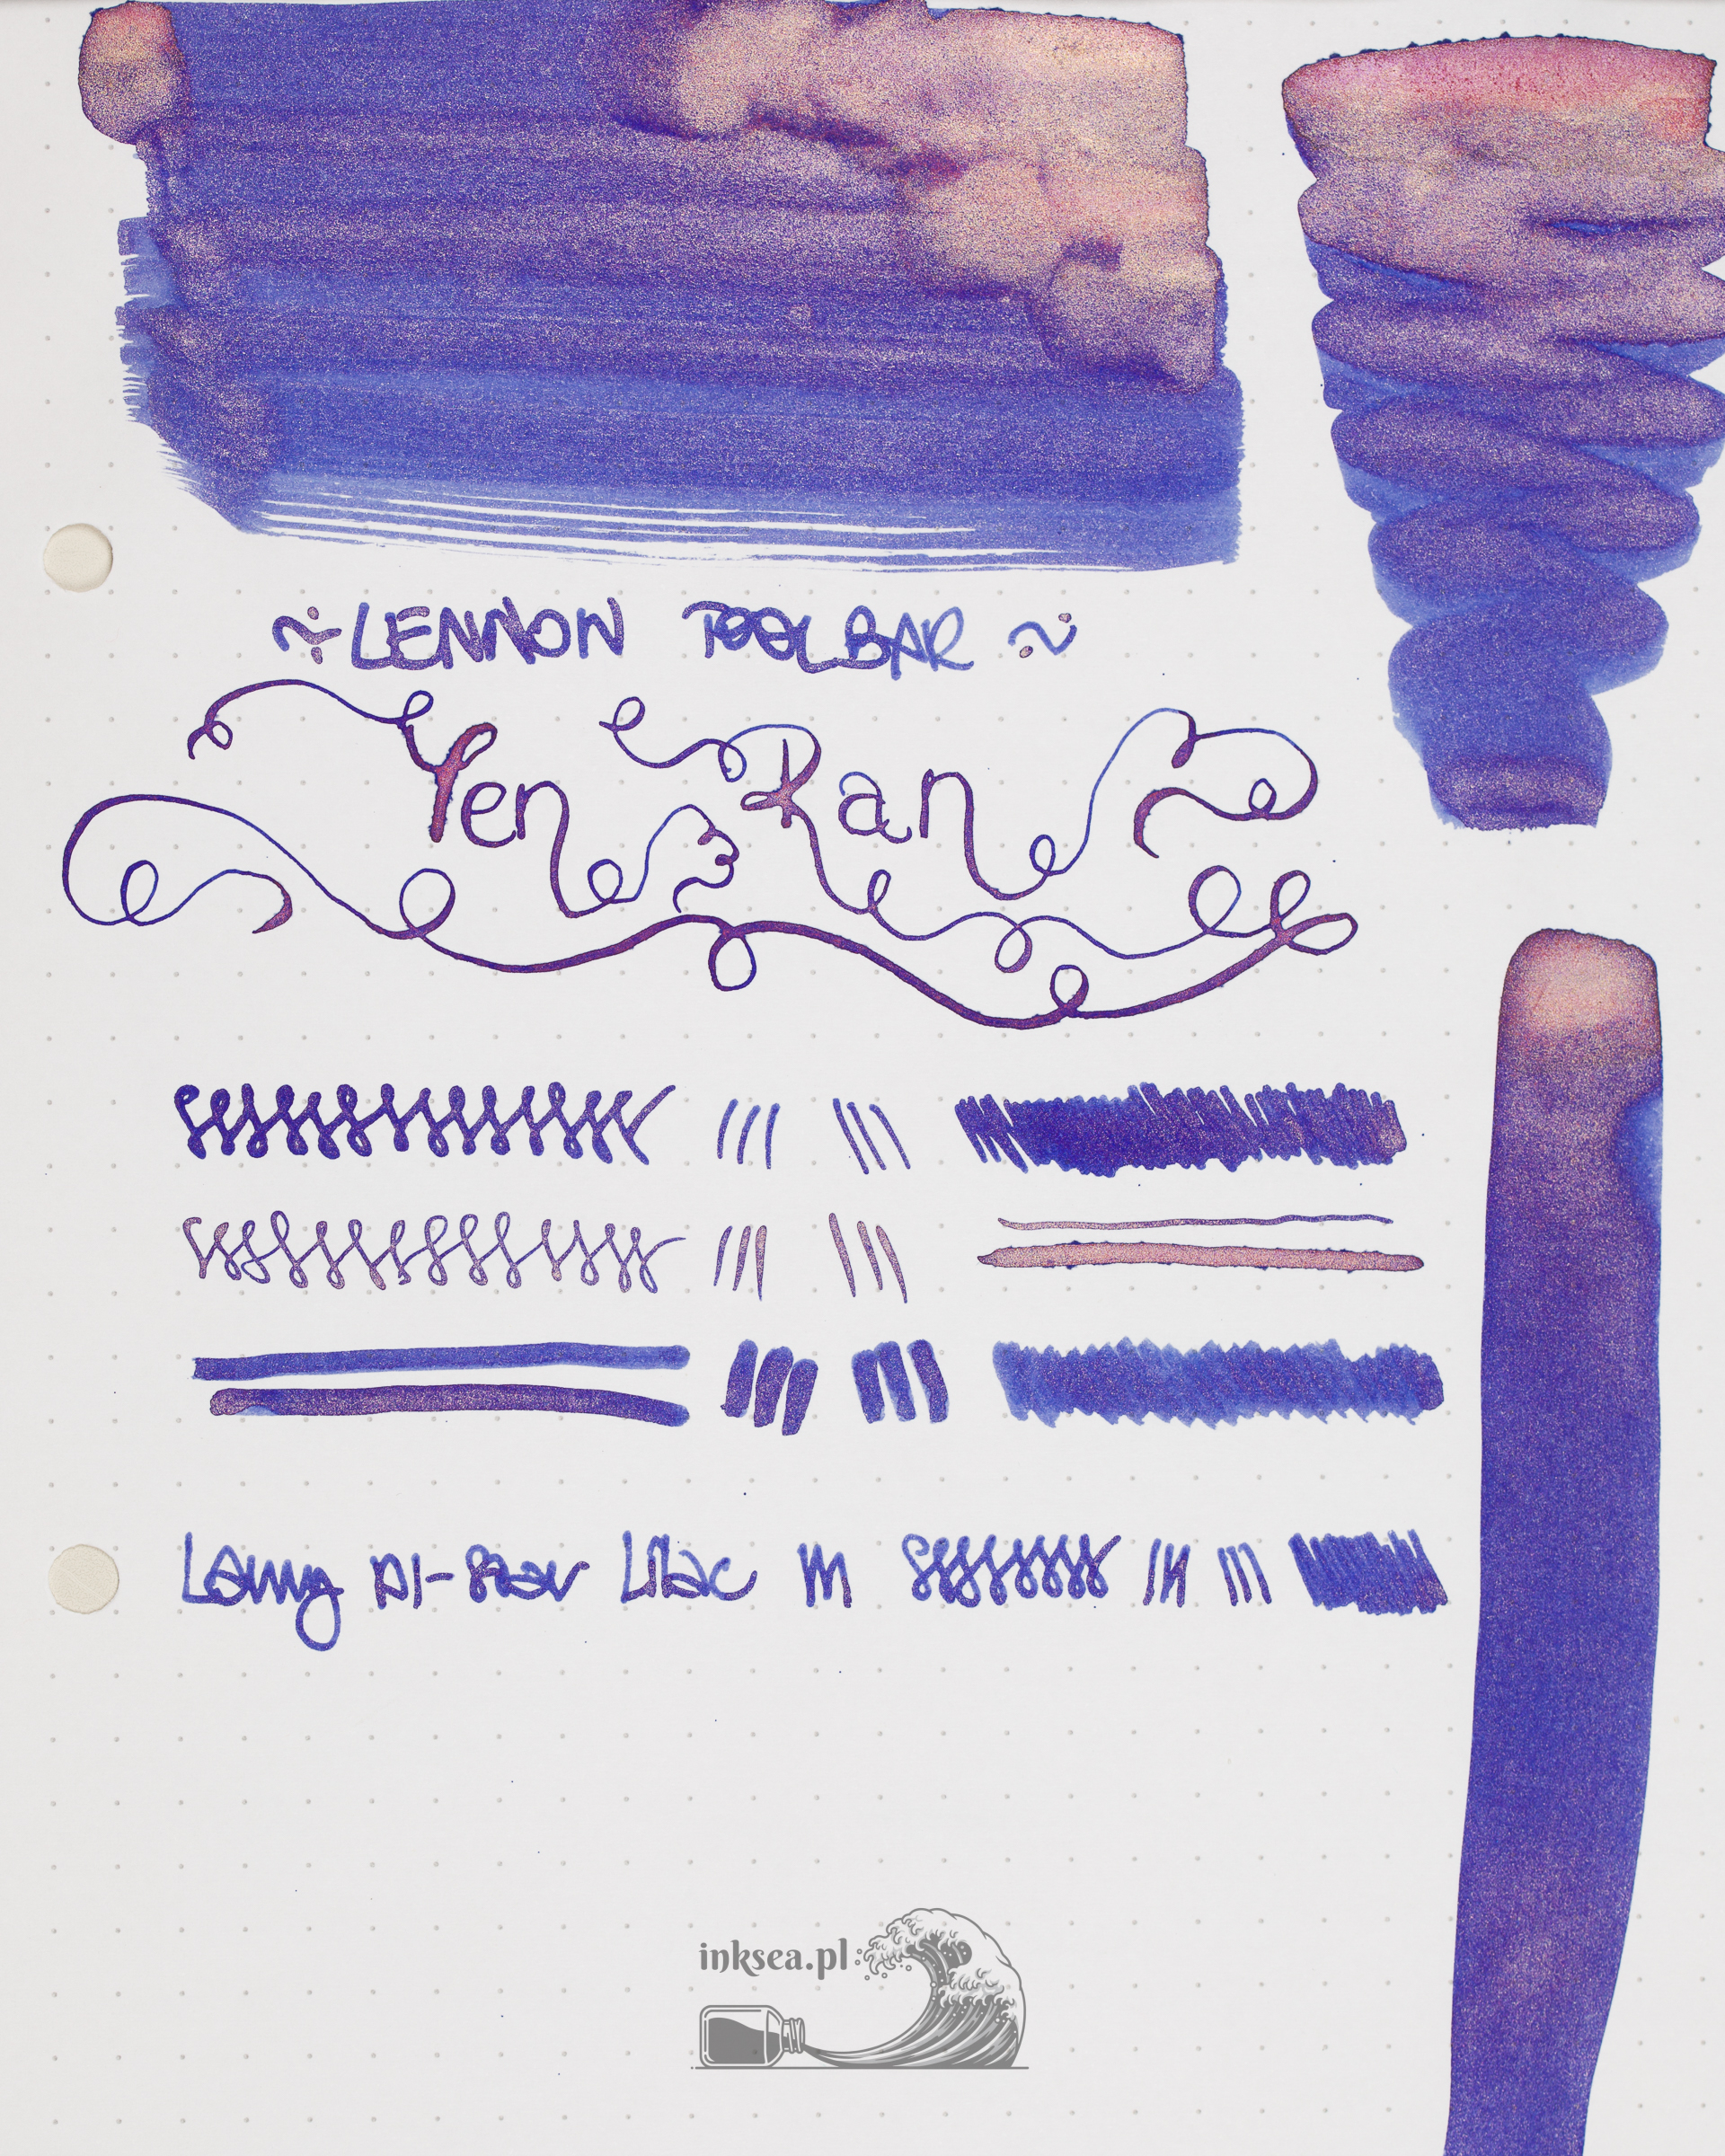 ~ LENNON TOOLBAR ~
Yen Ran
Lamy Al-Star Lilac M
inksea.pl